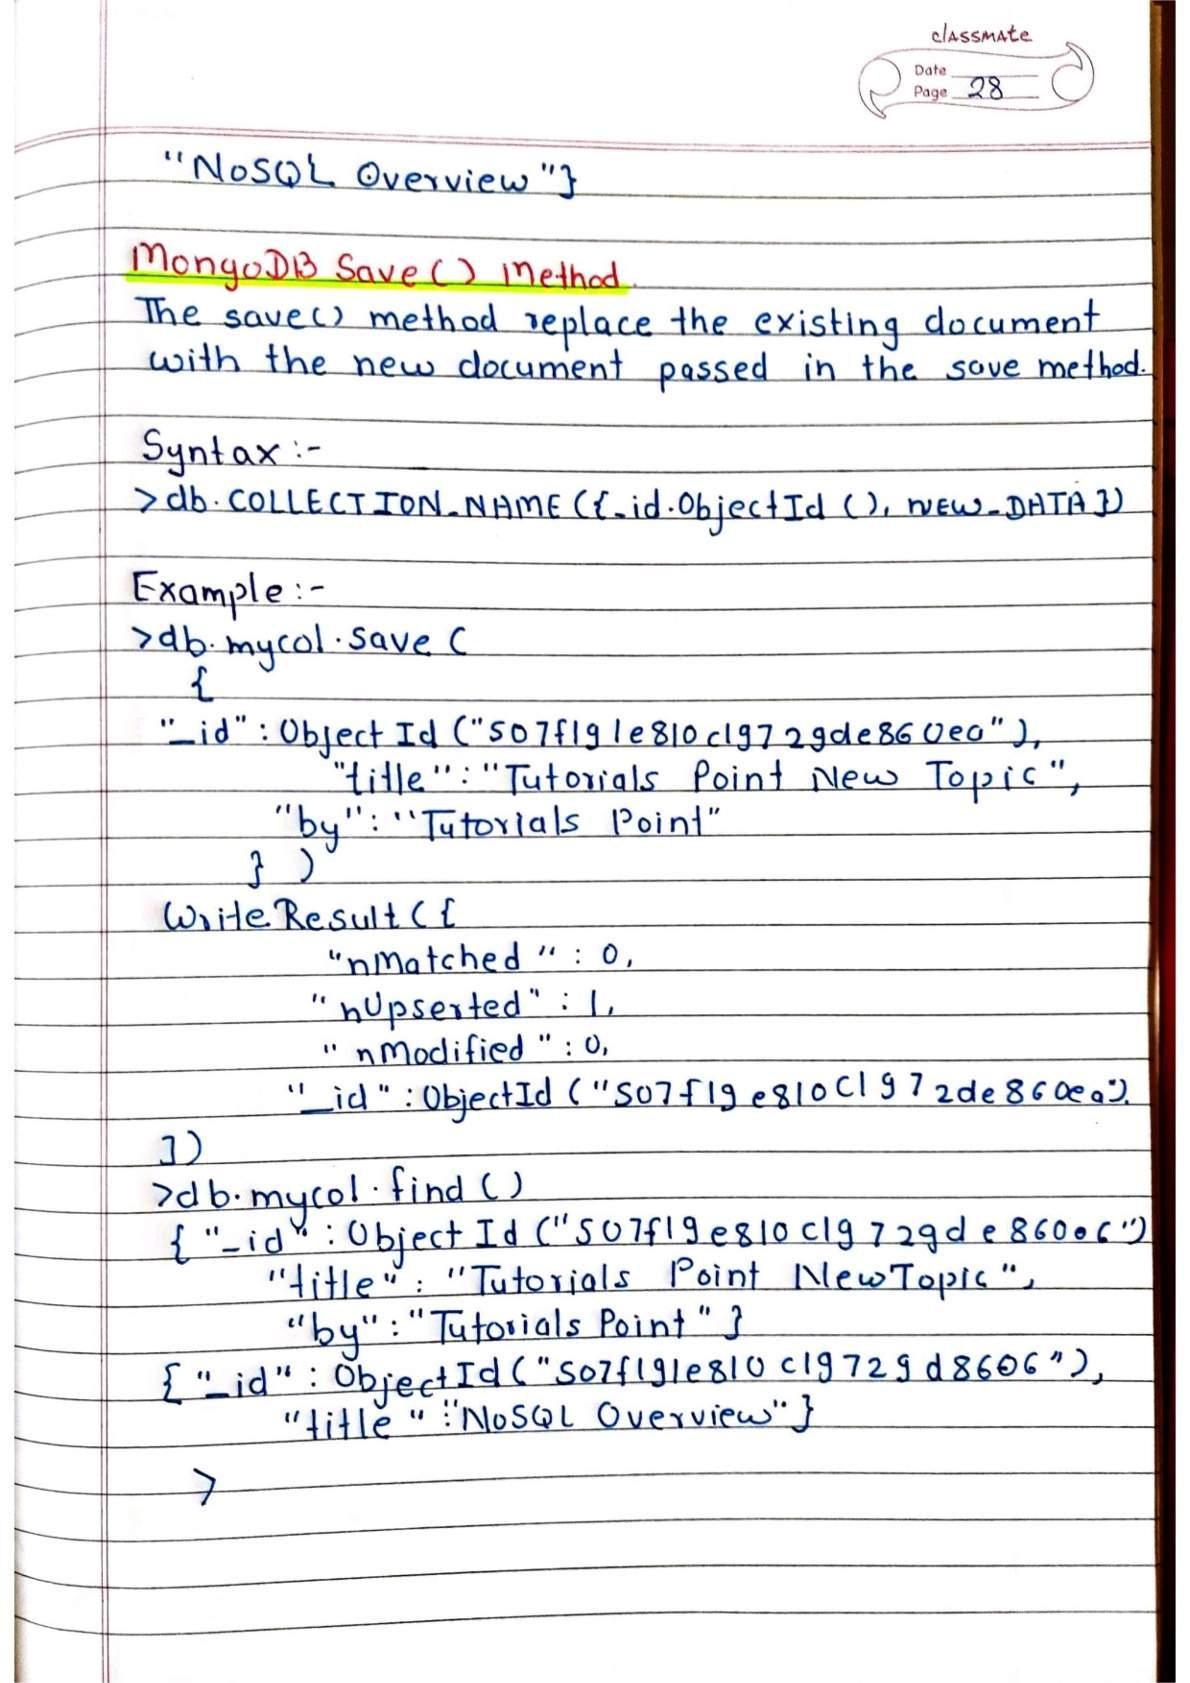 classmate
Date
Page 28
"NoSQL Overview"}
MongoDB Save() Method.
The save() method replace the existing document
with the new document passed in the save method.
Syntax :-
>db.COLLECTION_NAME({_id.ObjectId(), NEW_DATA})
Example :-
>db.mycol.save(
{
"_id" : Object Id ("507f191e810c19729de860ea"),
"title" : "Tutorials Point New Topic",
"by" : "Tutorials Point"
} )
WriteResult({
"nMatched" : 0,
"nUpserted" : 1,
"nModified" : 0,
"_id" : ObjectId ("507f19e810c1972de860ea").
})
>db.mycol.find()
{ "_id" : Object Id ("507f19e810c19729de86006")
"title" : "Tutorials Point New Topic",
"by" : "Tutorials Point" }
{ "_id" : ObjectId ("507f191e810c19729d8606"),
"title" : "NoSQL Overview"}
>